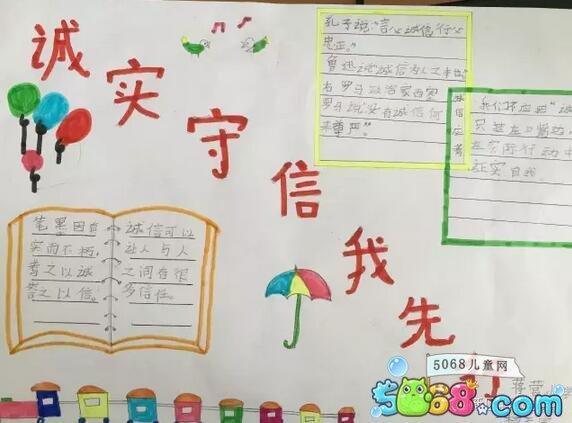 诚实守信我先行
孔子说:"言必诚信行必
忠正。"
鲁迅说"诚信为人之本也
古罗马政治家西塞
罗马说"没有诚信何
来尊严"。
诚信在着
我们不应把"诚
只在在口头
在实际行动中
证实自我。
笔墨因自
实而不柄,
考之以诚
答之以信。
诚信可以
让人与人
之间有很
多信任。
5068儿童网
5068.com